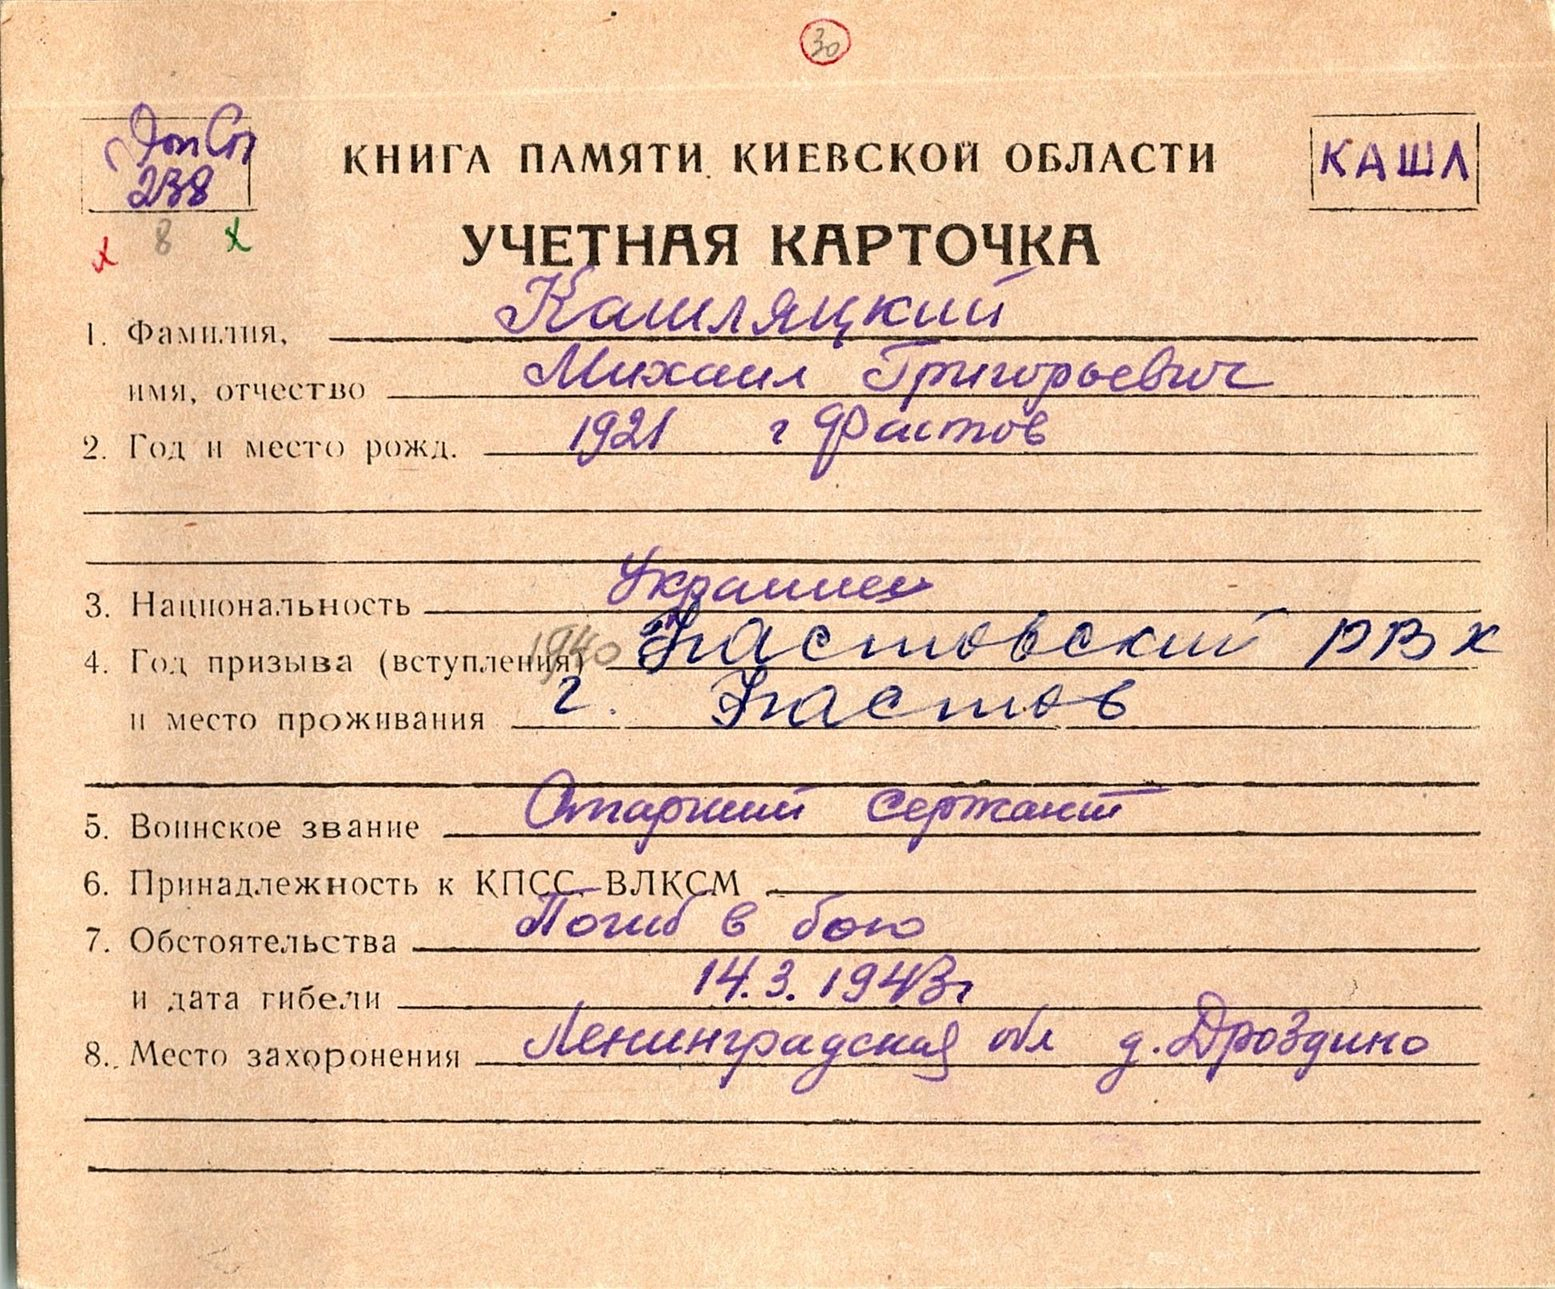 30
Доп Сп
238
КНИГА ПАМЯТИ КИЕВСКОЙ ОБЛАСТИ
КАШЛ
х 8 х
УЧЕТНАЯ КАРТОЧКА
1. Фамилия, Кашляцкий
имя, отчество Михаил Григорьевич
2. Год и место рожд. 1921 г Фастов
3. Национальность Украинец
4. Год призыва (вступления) 1940 Фастовский РВК
и место проживания г. Фастов
5. Воинское звание Старший сержант
6. Принадлежность к КПСС, ВЛКСМ
7. Обстоятельства Погиб в бою
и дата гибели 14.3.1943г
8. Место захоронения Ленинградская обл д. Дроздино